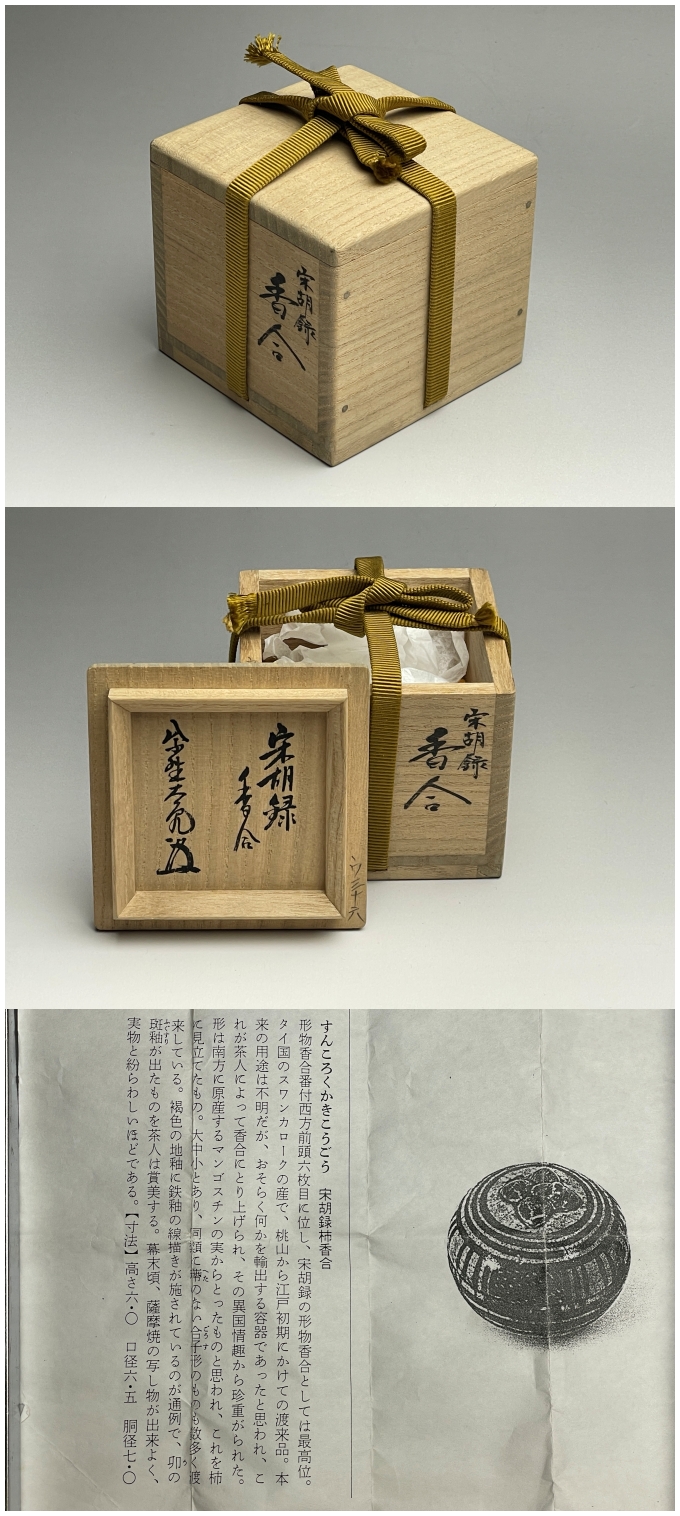 宋胡録
香合
宋胡録
香合
宋胡録
香合
ウ三十六
すんころくかきこうごう　宋胡録柿香合
形物香合番付西方前頭六枚目に位し、宋胡録の形物香合としては最高位。
タイ国のスワンカロークの産で、桃山から江戸初期にかけての渡来品。本
来の用途は不明だが、おそらく何かを輸出する容器であったと思われ、こ
れが茶人によって香合にとり上げられ、その異国情趣から珍重がられた。
形は南方に原産するマンゴスチンの実からとったものと思われ、これを柿
に見立てたもの。大中小とあり、同類に蔕のない合子形のものも数多く渡
来している。褐色の地釉に鉄釉の線描きが施されているのが通例で、卯の
斑釉が出たものを茶人は賞美する。幕末頃、薩摩焼の写し物が出来よく、
実物と紛らわしいほどである。【寸法】高さ六・〇　口径六・五　胴径七・〇